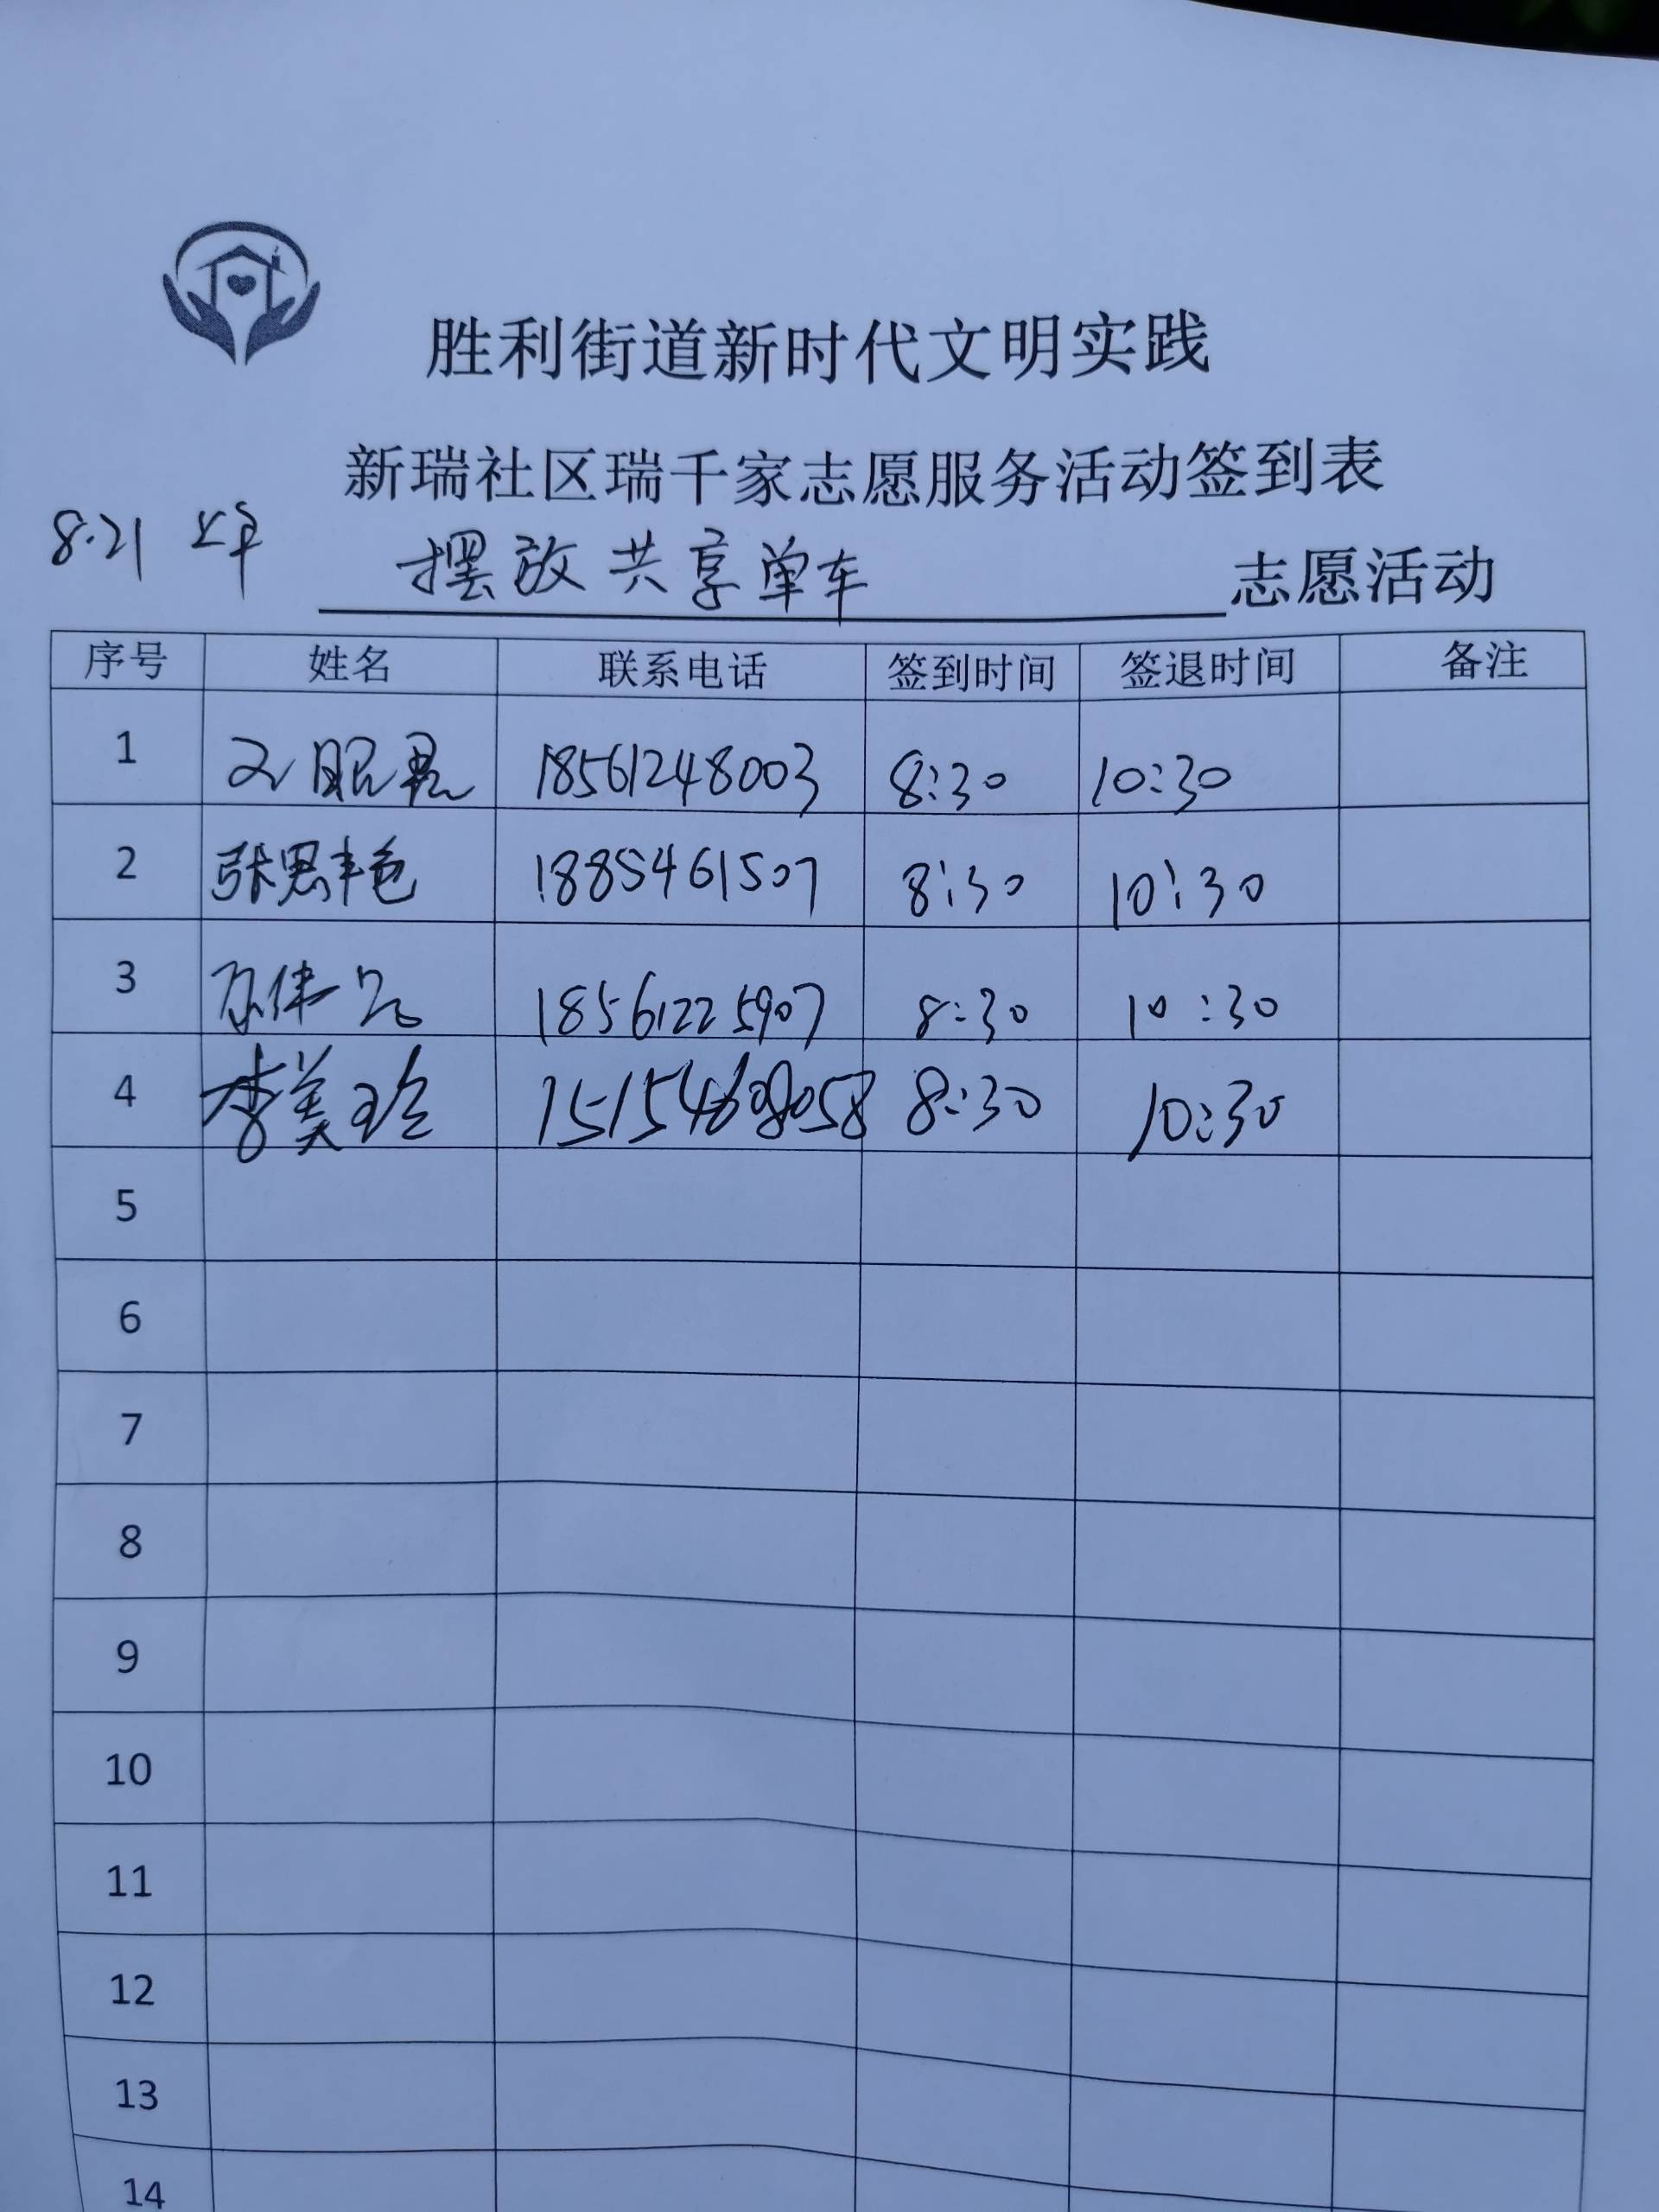 胜利街道新时代文明实践
新瑞社区瑞千家志愿服务活动签到表
8.21 上午 摆放共享单车 志愿活动
序号 姓名 联系电话 签到时间 签退时间 备注
1 18561248003 8:30 10:30
2 张思艳 1885461507 8:30 10:30
3 18561225907 8:30 10:30
4 李美玲 8:30 10:30
5
6
7
8
9
10
11
12
13
14